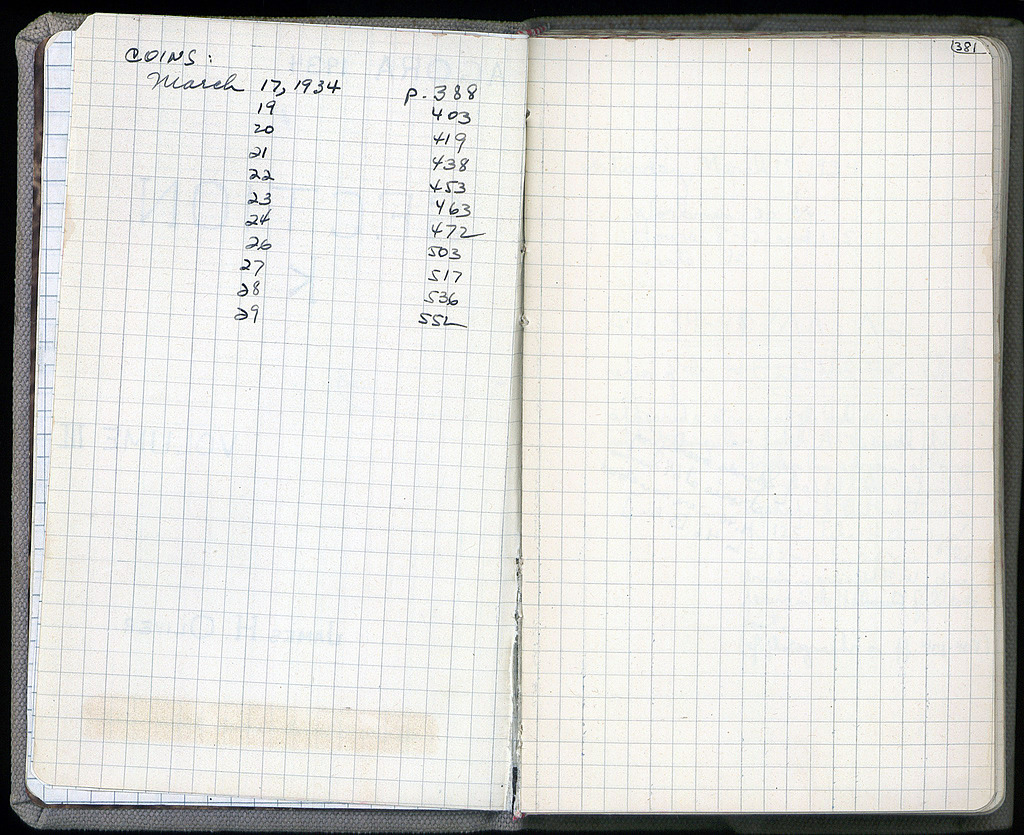 COINS:
March 17, 1934 p. 388
19 403
20 419
21 438
22 453
23 463
24 472
26 503
27 517
28 536
29 552
381